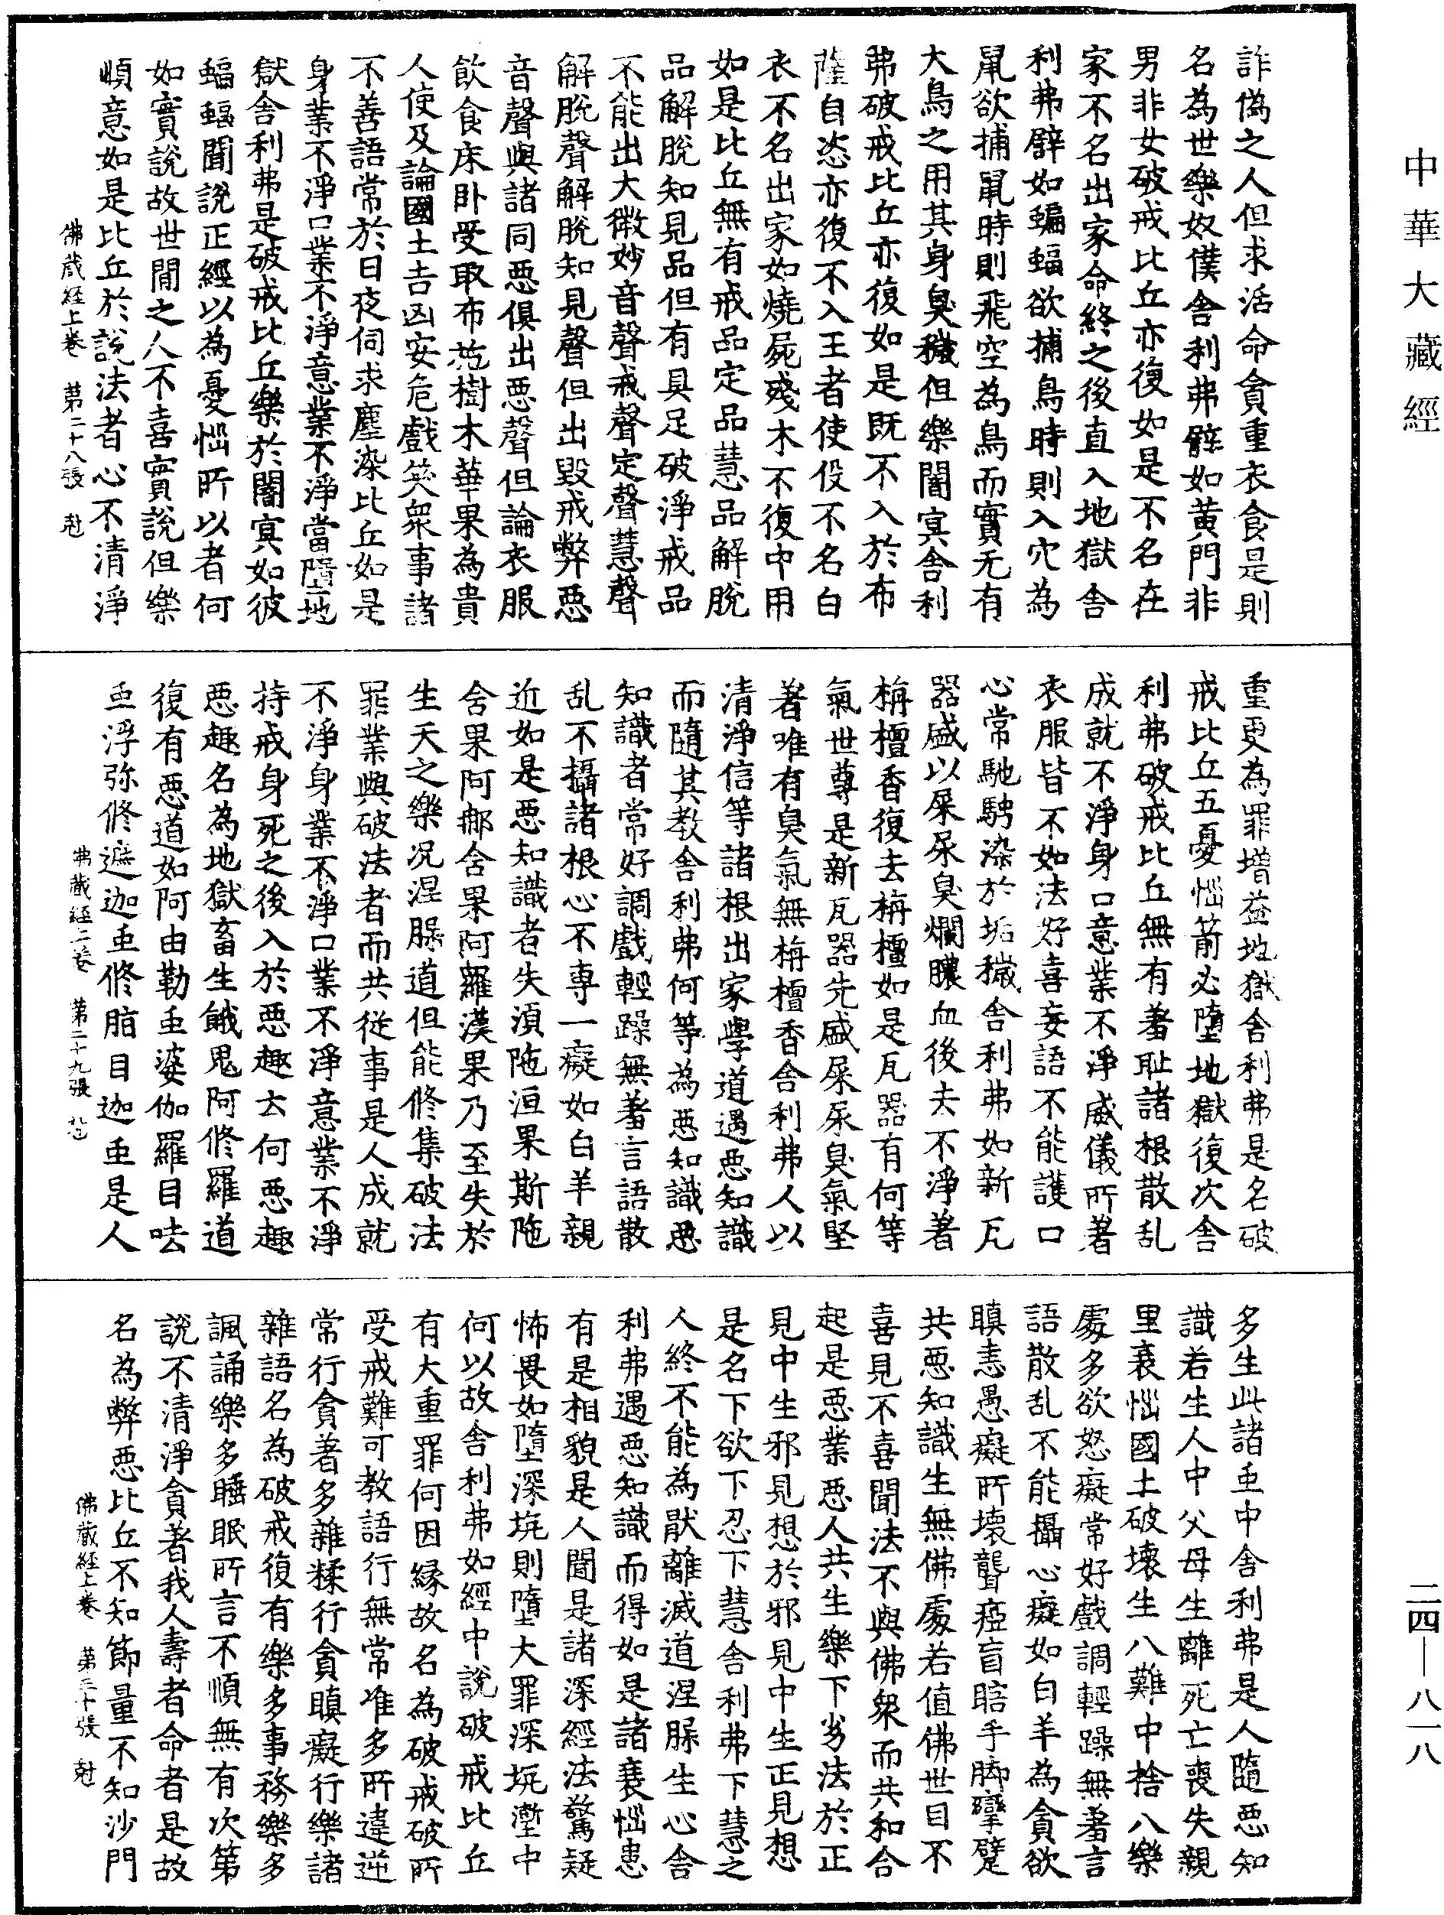 中華大藏經
詐偽之人但求活命貪重衣食是則
名為世樂奴僕舍利弗譬如黃門非
男非女破戒比丘亦復如是不名在
家不名出家命終之後直入地獄舍
利弗譬如蝙蝠欲捕鳥時則入穴為
鼠欲捕鼠時則飛空為鳥而實无有
大鳥之用其身臭穢但樂闇冥舍利
弗破戒比丘亦復如是既不入於布
薩自恣亦復不入王者使役不名白
衣不名出家如燒屍殘木不復中用
如是比丘無有戒品定品慧品解脫
品解脫知見品但有具足破淨戒品
不能出大微妙音聲戒聲定聲慧聲
解脫聲解脫知見聲但出毀戒弊惡
音聲與諸同惡俱出惡聲但論衣服
飲食床臥受取布施樹木華果為貴
人使及論國土吉凶安危戲笑眾事諸
不善語常於日夜伺求塵染比丘如是
身業不淨口業不淨意業不淨當墮地
獄舍利弗是破戒比丘樂於闇冥如彼
蝙蝠聞說正經以為憂惱所以者何
如實說故世間之人不喜實說但樂
順意如是比丘於說法者心不清淨
佛藏經上卷 第二十八張 尅
重更為罪增益地獄舍利弗是名破
戒比丘五憂惱箭必墮地獄復次舍
利弗破戒比丘無有羞恥諸根散乱
成就不淨身口意業不淨威儀所著
衣服皆不如法好喜妄語不能護口
心常馳騁染於垢穢舍利弗如新瓦
器盛以屎尿臭爛膿血後去不淨著
栴檀香復去栴檀如是瓦器有何等
氣世尊是新瓦器先盛屎尿臭氣堅
著唯有臭氣無栴檀香舍利弗人以
清淨信等諸根出家學道遇惡知識
而隨其教舍利弗何等為惡知識惡
知識者常好調戲輕躁無羞言語散
乱不攝諸根心不專一癡如白羊親
近如是惡知識者失須陁洹果斯陁
含果阿那含果阿羅漢果乃至失於
生天之樂況涅槃道但能修集破法
罪業與破法者而共從事是人成就
不淨身業不淨口業不淨意業不淨
持戒身死之後入於惡趣云何惡趣
惡趣名為地獄畜生餓鬼阿修羅道
復有惡道如阿由勒䖝婆伽羅目呿
䖝浮弥修遮迦䖝脩脂目迦䖝是人
佛藏經上卷 第二十九張 尅
多生此諸䖝中舍利弗是人隨惡知
識若生人中父母生離死亡喪失親
里衰惱國土破壞生八難中捨八樂
處多欲怒癡常好戲調輕躁無羞言
語散乱不能攝心癡如白羊為貪欲
瞋恚愚癡所壞聾瘂盲瞎手脚攣躄
共惡知識生無佛處若值佛世目不
喜見不喜聞法不與佛眾而共和合
起是惡業惡人共生樂下劣法於正
見中生邪見想於邪見中生正見想
是名下欲下忍下慧舍利弗下慧之
人終不能為猒離滅道涅槃生心舍
利弗遇惡知識而得如是諸衰惱患
有是相貌是人聞是諸深經法驚疑
怖畏如墮深坑則墮大罪深坑壍中
何以故舍利弗如經中說破戒比丘
有大重罪何因緣故名為破戒破所
受戒難可教語行無常准多所違逆
常行貪著多雜糅行貪瞋癡行樂諸
雜語名為破戒復有樂多事務樂多
諷誦樂多睡眠所言不順無有次第
說不清淨貪著我人壽者命者是故
名為弊惡比丘不知節量不知沙門
佛藏經上卷 第三十張 尅
二四—八一八